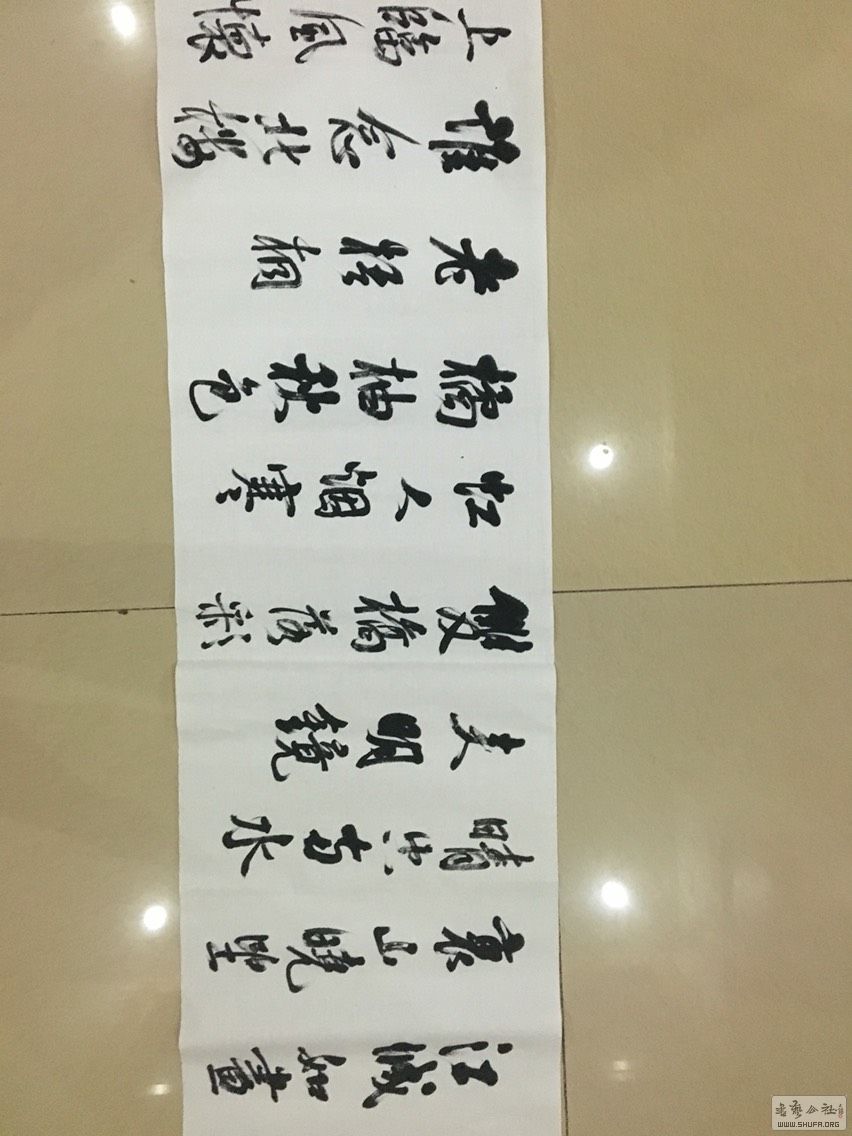 江城如畫
裏山曉望
晴空两水
夾明鏡
雙橋落彩
虹人烟寒
橘柚秋色
老梧桐
誰念北樓
上臨風懷
WWW.SHUFA.ORG